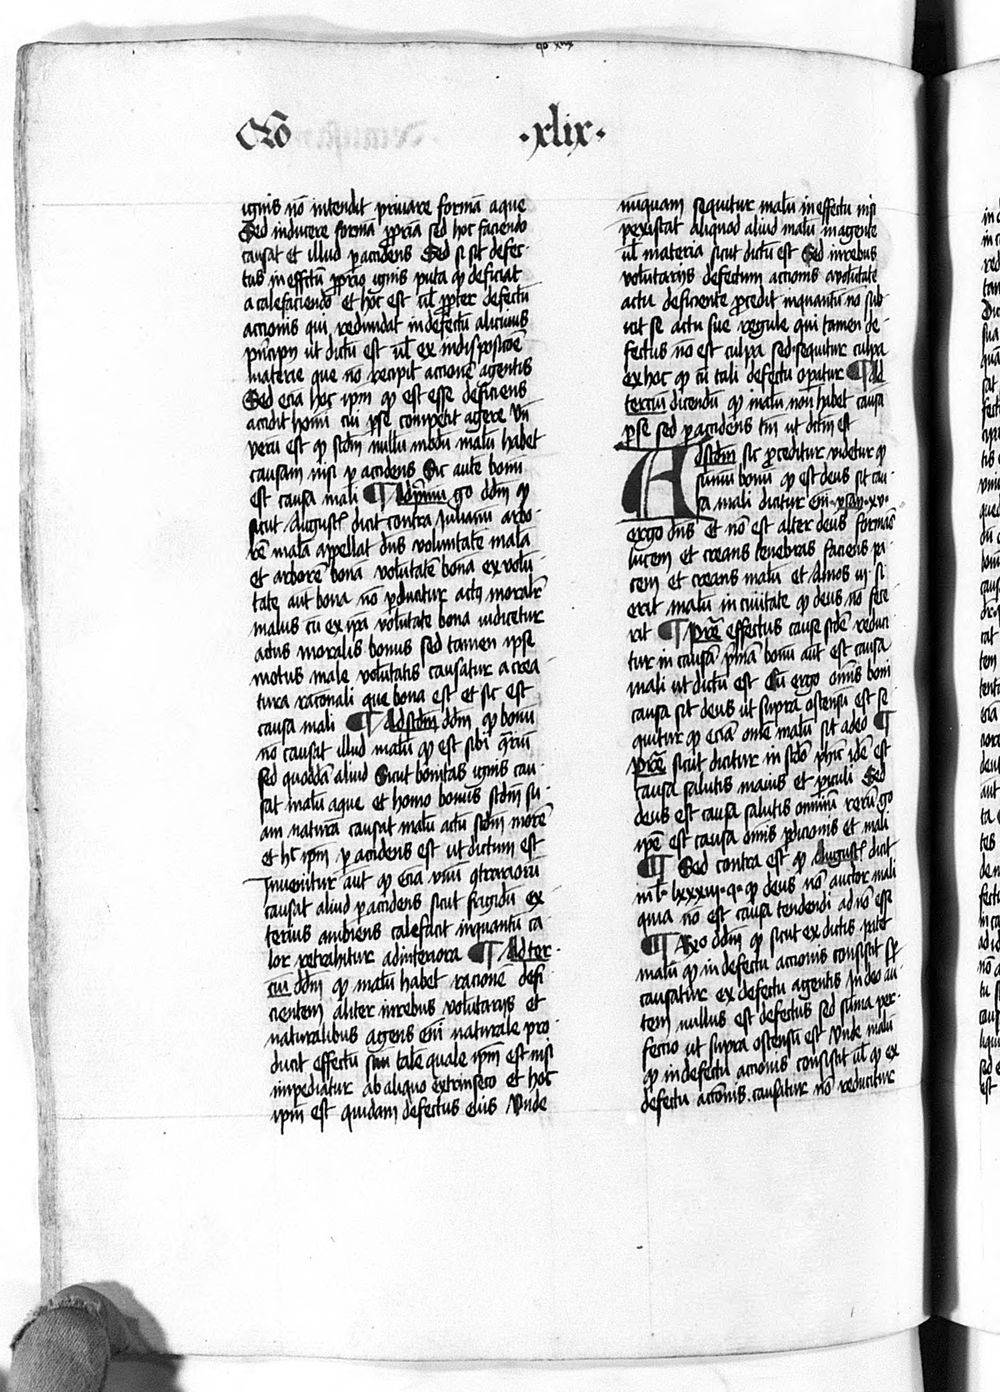 qo xlix
Qo .xlix.
ignis nō intendit priuare formā aque
Sed inducere formā ꝓpriā sed hoc faciendo
causat et illud ꝑ accidens Sed si sit defec
tus in effectu ꝓprio ignis puta ꝙ deficiat
a calefaciendo et hoc est ul̄ ꝓpter defectū
accionis qui redundat in defectū alicuius
principii ut dictū est ul̄ ex indisposicōe
materie que nō recipit accionē agentis
Sed ecia hoc ipm̄ ꝙ est esse deficiens
accidit boni cui ꝑse competit agere Vn̄
verū est ꝙ scdm̄ nullū modū malū habet
causam nisi ꝑ accidens Sic autē bonū
est causa mali ¶ Ad pͥmū go dd̄m ꝙ
sicut Augustꝰ dicit contra Julianū arbo
rē malā appellat dn̄s voluntatē malā
et arborē bonā volūtatē bonā ex volū
tate aut bona no ꝓducitur actꝰ moralꝭ
malus cū ex ipa volūtate bona iudicetur
actus moralis bonus sed tamen ipse
motus male volūtatis causatur a crea
tura raconali que bona est et sic est
causa mali ¶ Ad scdm̄ dd̄m ꝙ bonū
no causat illud malū ꝙ est sibi ꝯrariū
sed quoddā aliud Sicut bonitas ignis cau
sat malū aque et homo bonus scdm̄ su
am naturā causat malū actū scdm̄ morē
et hc̄ ipm̄ ꝑ accidens est ut dictum est
Inuenitur aut ꝙ ecia vnū ꝯtrariorū
causat aliud ꝑ accidens sicut frigidū ex
terius ambiens calefacit inquantū ca
lor retrahitur ad interiora ¶ Ad ter
ciū dd̄m ꝙ malū habet racionē defi
cientem aliter in rebus volūtariis et
naturalibus agens eni naturale pro
ducit effectū suū tale quale ipm̄ est nisi
impediatur ab aliquo extrinseco et hoc
ipm̄ est quidam defectus eius Vnde
nūquam sequitur malū in effectu nisi
pexistat aliquod aliud malū in agente
ul̄ materia sicut dictū est Sed in rebus
volūtariis defectum accionis a volūtate
actu deficiente ꝓcedit inquantū no sub
icit se actu sue regule qui tamen de
fectus nō est culpa sed sequitur culpa
ex hoc ꝙ cū tali defectu oꝑatur ¶ Ad
terciū dicendū ꝙ malū non habet causā
ꝑ se sed ꝑ accidens tm̄ ut dictū est
Ad scdm̄ sic ꝓceditur videtur ꝙ
sum̄u bonū ꝙ est deus sit cau
sa mali dicitur em̄ ysay. xv.
ergo dn̄s et nō est alter deus formās
lucem et creans tenebras faciens pa
cem et creans malū et Amos iij si
erit malū in ciuitate ꝙ deus nō fece
rit ¶ Pr̄e effectus cause scd̄e reduci
tur in causā pͥmā bonū aut est causa
mali ut dictū est Cū ergo om̄is boni
causa sit deus ut supra ostensū est se
quitur ꝙ eciā om̄e malū sit a deo ¶
Pr̄e sicut dicitur in scd̄o phīc idē est
causa salutis nauis et ꝑiculi Sed
deus est causa salutis omniū rerū go
ipē est causa om̄is ꝑdicionis et mali
¶ Sed contra est ꝙ Augustꝰ dicit
in l̄. lxxxiij. q. ꝙ deus nō auctor mali
quia nō est causa tendendi ad nō esse
¶ Rñ dd̄m ꝙ sicut ex dictis patet
malū ꝙ in defectu accionis consistit sꝑ
causatur ex defectu agentis In deo au
tem nullus est defectus sed sūma per
fectio ut supra ostensū est Vnde malū
ꝙ in defectu accionis consistit ul̄ ꝙ ex
defectu accionis causatur nō reducitur